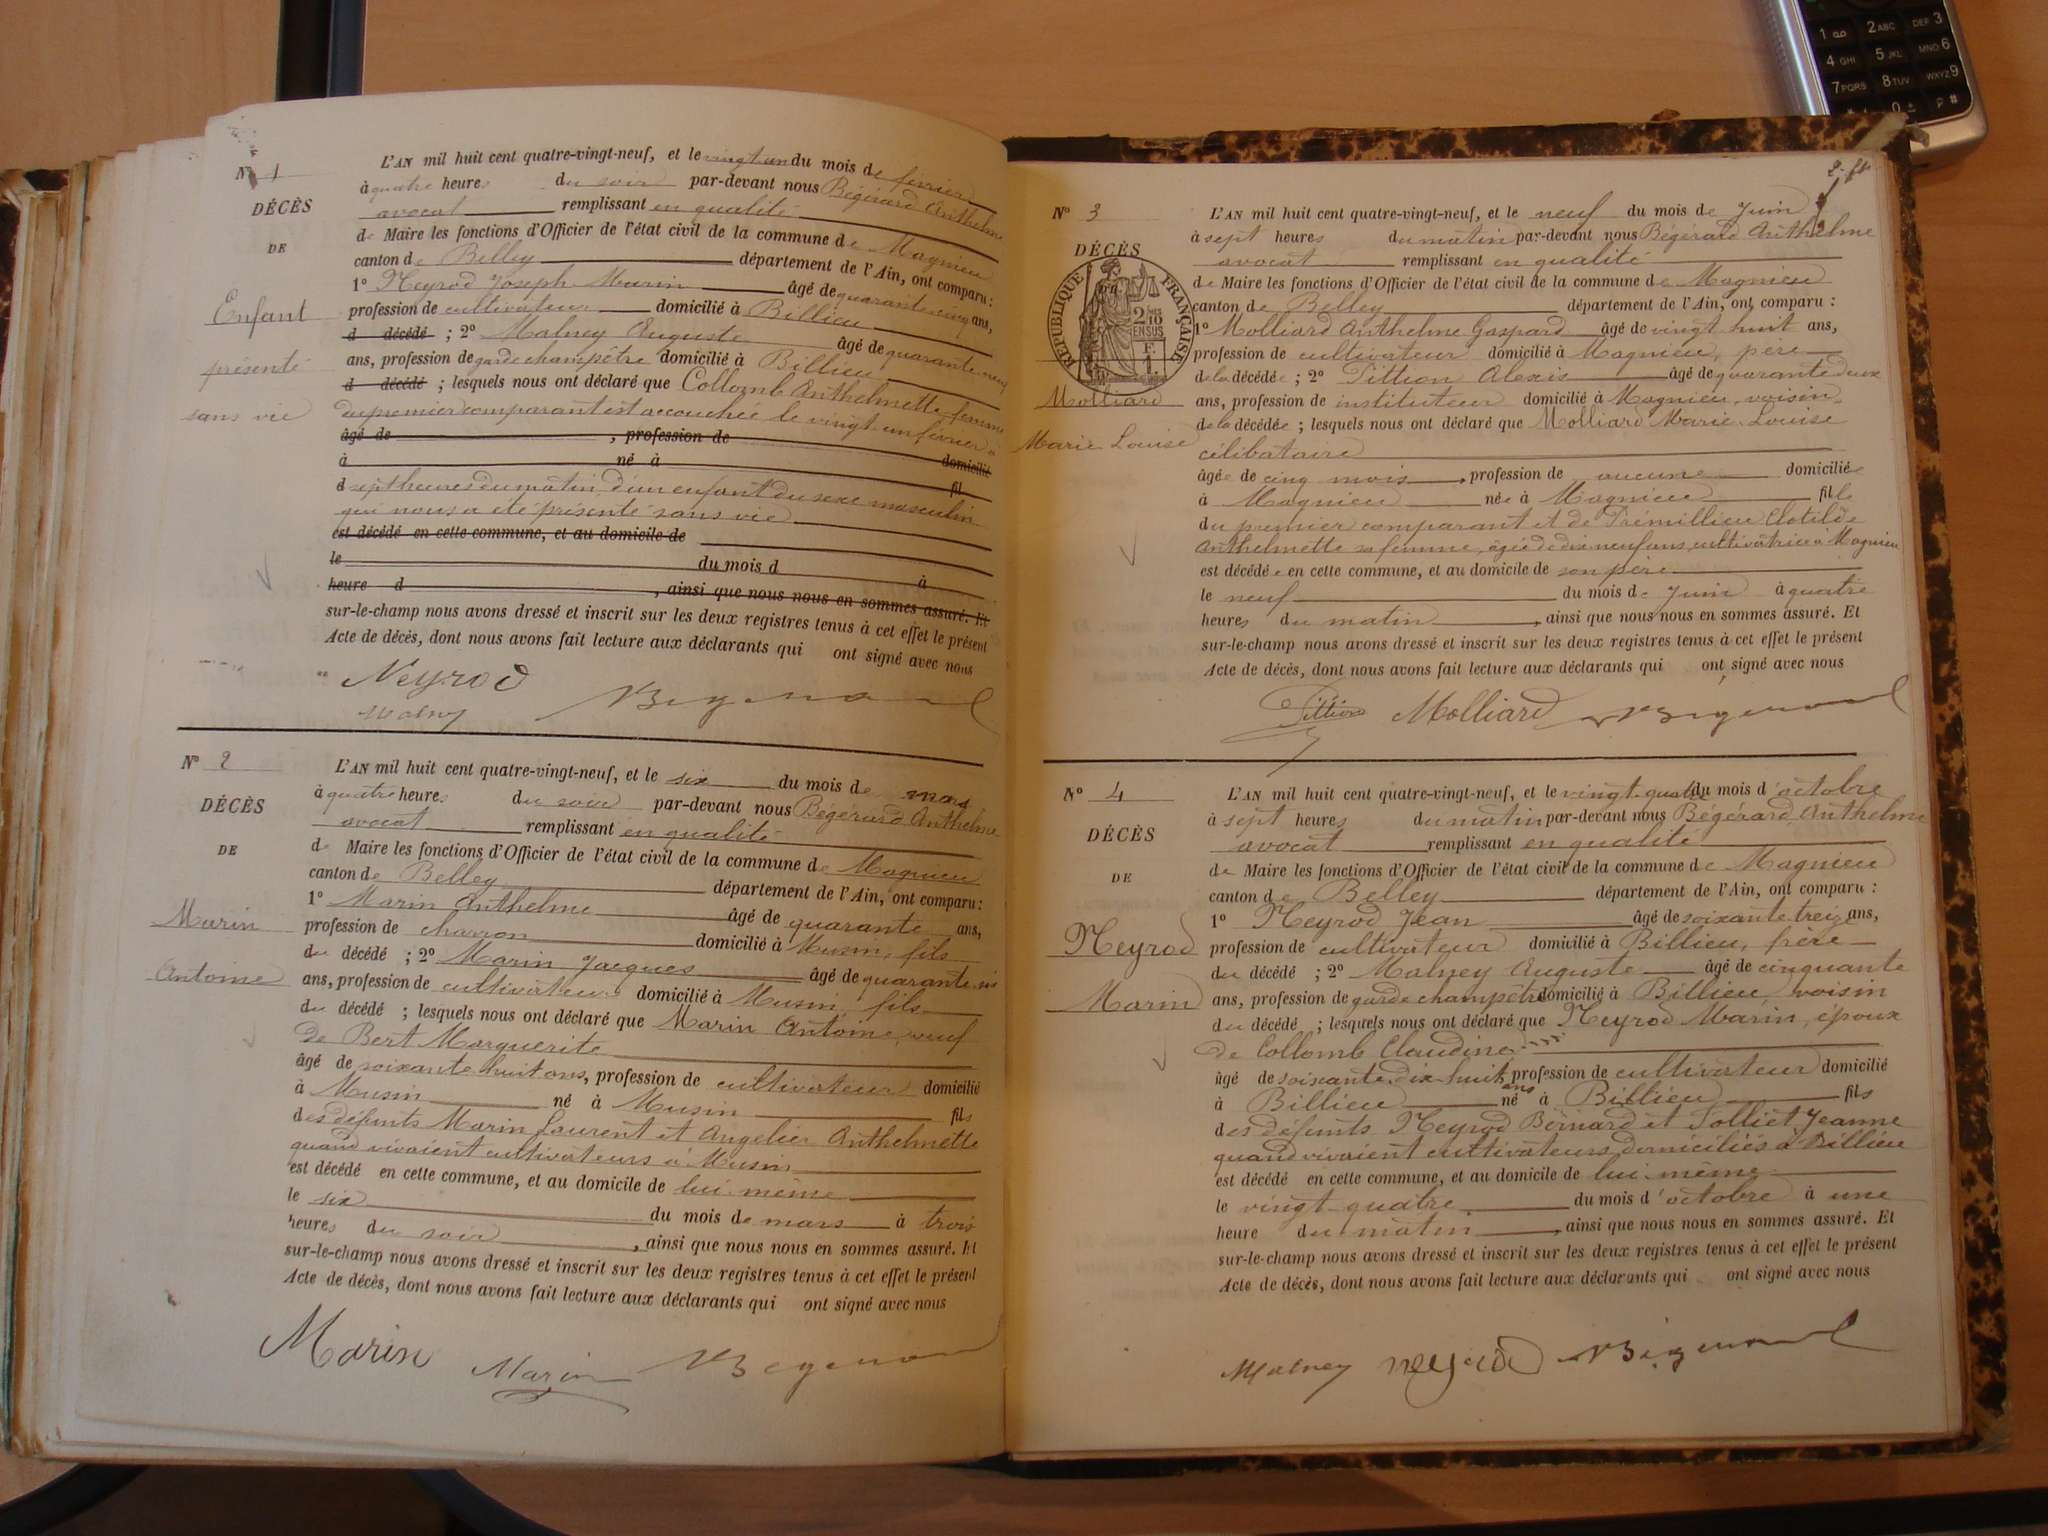 N° 1
DÉCÈS
DE
Enfant
présenté
sans vie
L'AN mil huit cent quatre-vingt-neuf, et le vingt un du mois de février
à quatre heures du soir par-devant nous Bégérard Anthelme
avocat remplissant en qualité
de Maire les fonctions d'Officier de l'état civil de la commune de Magnieu
canton de Belley département de l'Ain, ont comparu :
1° Neyrod Joseph Marin âgé de quarante cinq ans,
profession de cultivateur domicilié à Billieu
d décédé ; 2° Malney Auguste âgé de quarante neuf
ans, profession de garde champêtre domicilié à Billieu
d décédé ; lesquels nous ont déclaré que Collomb Anthelmette femme
du premier comparant est accouchée le vingt un février à
âgé de , profession de domicilié
à né à fil
d sept heures du matin d'un enfant du sexe masculin
qui nous a été présenté sans vie
est décédé en cette commune, et au domicile de
le du mois d à
heure d , ainsi que nous nous en sommes assuré. Et
sur-le-champ nous avons dressé et inscrit sur les deux registres tenus à cet effet le présent
Acte de décès, dont nous avons fait lecture aux déclarants qui ont signé avec nous
Neyrod
Malney
N° 2
DÉCÈS
DE
Marin
Antoine
L'AN mil huit cent quatre-vingt-neuf, et le six du mois de mars
à quatre heures du soir par-devant nous Bégérard Anthelme
avocat remplissant en qualité
de Maire les fonctions d'Officier de l'état civil de la commune de Magnieu
canton de Belley département de l'Ain, ont comparu :
1° Marin Anthelme âgé de quarante ans,
profession de charron domicilié à Musin, fils
du décédé ; 2° Marin Jacques âgé de quarante six
ans, profession de cultivateur domicilié à Musin, fils
du décédé ; lesquels nous ont déclaré que Marin Antoine, veuf
de Bert Marguerite
âgé de soixante huit ans, profession de cultivateur domicilié
à Musin né à Musin fils
des défunts Marin Laurent et Angelier Anthelmette
quand vivaient cultivateurs à Musin
est décédé en cette commune, et au domicile de lui-même
le six du mois de mars à trois
heures du soir , ainsi que nous nous en sommes assuré. Et
sur-le-champ nous avons dressé et inscrit sur les deux registres tenus à cet effet le présent
Acte de décès, dont nous avons fait lecture aux déclarants qui ont signé avec nous
Marin Marin
N° 3
DÉCÈS
RÉPUBLIQUE FRANÇAISE
Molliard
Marie Louise
L'AN mil huit cent quatre-vingt-neuf, et le neuf du mois de Juin
à sept heures du matin par-devant nous Bégérard Anthelme
avocat remplissant en qualité
de Maire les fonctions d'Officier de l'état civil de la commune de Magnieu
canton de Belley département de l'Ain, ont comparu :
1° Molliard Anthelme Gaspard âgé de vingt huit ans,
profession de cultivateur domicilié à Magnieu, père
de la décédée ; 2° Pittion Alexis âgé de quarante deux
ans, profession de instituteur domicilié à Magnieu, voisin
de la décédée ; lesquels nous ont déclaré que Molliard Marie Louise
célibataire
âgée de cinq mois, profession de aucune domiciliée
à Magnieu née à Magnieu fille
du premier comparant et de Prémillieu Clotilde
Anthelmette sa femme, âgée de dix neuf ans, cultivatrice à Magnieu
est décédée en cette commune, et au domicile de son père
le neuf du mois de Juin à quatre
heures du matin , ainsi que nous nous en sommes assuré. Et
sur-le-champ nous avons dressé et inscrit sur les deux registres tenus à cet effet le présent
Acte de décès, dont nous avons fait lecture aux déclarants qui ont signé avec nous
Pittion Molliard
N° 4
DÉCÈS
DE
Neyrod
Marin
L'AN mil huit cent quatre-vingt-neuf, et le vingt-quatre du mois d'octobre
à sept heures du matin par-devant nous Bégérard Anthelme
avocat remplissant en qualité
de Maire les fonctions d'Officier de l'état civil de la commune de Magnieu
canton de Belley département de l'Ain, ont comparu :
1° Neyrod Jean âgé de soixante treize ans,
profession de cultivateur domicilié à Billieu, frère
du décédé ; 2° Malney Auguste âgé de cinquante
ans, profession de garde champêtre domicilié à Billieu voisin
du décédé ; lesquels nous ont déclaré que Neyrod Marin, époux
de Collomb Claudine
âgé de soixante dix huit ans profession de cultivateur domicilié
à Billieu né à Billieu fils
des défunts Neyrod Bernard et Tolliet Jeanne
quand vivaient cultivateurs domiciliés à Billieu
est décédé en cette commune, et au domicile de lui-même
le vingt quatre du mois d'octobre à une
heure du matin , ainsi que nous nous en sommes assuré. Et
sur-le-champ nous avons dressé et inscrit sur les deux registres tenus à cet effet le présent
Acte de décès, dont nous avons fait lecture aux déclarants qui ont signé avec nous
Malney neyrod
1 2 ABC DEF 3
4 GHI 5 JKL MNO 6
7 PQRS 8 TUV WXYZ 9
0 #